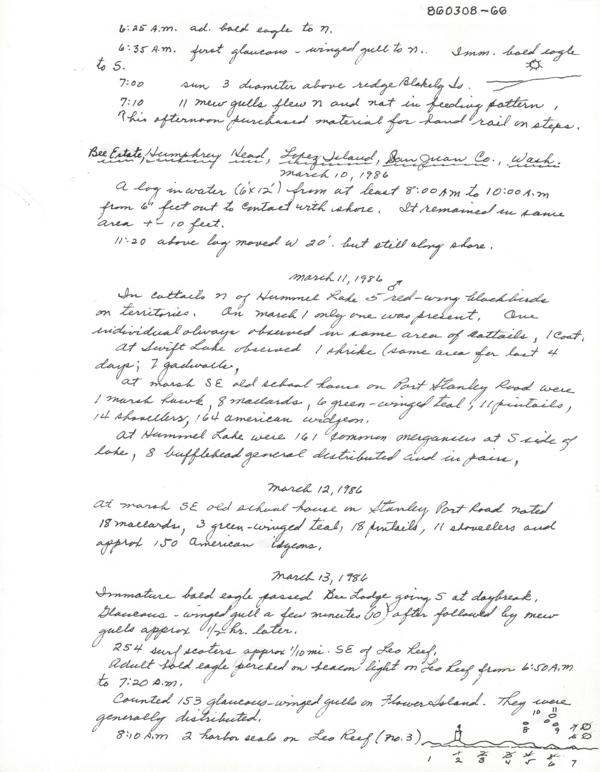 860308-66
6:25 A.M. ad. bald eagle to N.
6:35 A.M. first glaucous-winged gull to N. Imm. bald eagle
to S.
7:00 sun 3 diameter above redge Blakely Is.
7:10 11 mew gulls flew N and not in feeding pattern,
This afternoon purchased material for hand rail on steps.
Bee Estate, Humphrey Head, Lopez Island, San Juan Co., Wash.
March 10, 1986
A log in water (6x12') from at least 8:00 AM to 10:00 A.M
from 6" feet out to contact with shore. It remained in same
area +- 10 feet.
11:20 above log moved W 20'. but still along shore.
March 11, 1986
In cattails N of Hummel Lake 5 ♂ red-wing blackbirds
on territories. On March 1 only one was present. One
individual always observed in same area of cattails, 1 coot.
At Swift Lake observed 1 shrike (same area for last 4
days; 7 gadwalls,
At marsh SE old school house on Port Stanley Road were
1 marsh hawk, 8 mallards, 6 green-winged teal, 11 pintails,
14 shovellers, 164 american widgeon.
At Hummel Lake were 161 common mergansers at S side of
lake, 8 bufflehead general distributed and in pairs,
March 12, 1986
At marsh SE old school house on Stanley Port Road noted
18 mallards, 3 green-winged teal, 18 pintails, 11 shovellers and
approx 150 american
March 13, 1986
Immature bald eagle passed Bee Lodge going S at daybreak.
Glaucous-winged gull a few minutes (10) after followed by mew
gulls approx 1/2 hr. later.
254 surf scoters approx 1/10 mi. SE of Leo Reef,
Adult bald eagle perched on beacon light on Leo Reef from 6:50 A.M
to 7:20 A.M.
Counted 153 glaucous-winged gulls on Flower Island. They were
generally distributed.
8:10 A.M 2 harbor seals on Leo Reef (No. 3)
10 11
8 9
1 2 3 4 5 6 7